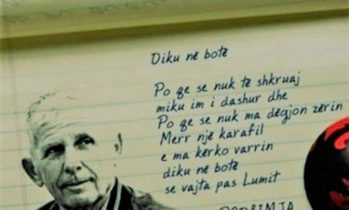 Diku në botë
Po qe se nuk të shkruaj
miku im i dashur dhe
Po qe se nuk ma dëgjon zërin
Merr një karafil
e ma kërko varrin
diku në botë
se vajta pas Lumit